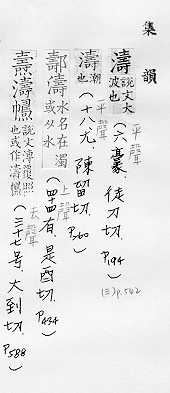 集韻
濤 說文大波也 (六豪, 徒刀切. P194) 平聲
(三)p.542
濤 潮也 (十八尤, 陳留切. P260) 平聲
水名在蜀或从水 (四十四有, 是酉切. P434) 上聲
燾濤幬 說文溥覆照也或作濤幬 (三十七号, 大到切. P588) 去聲